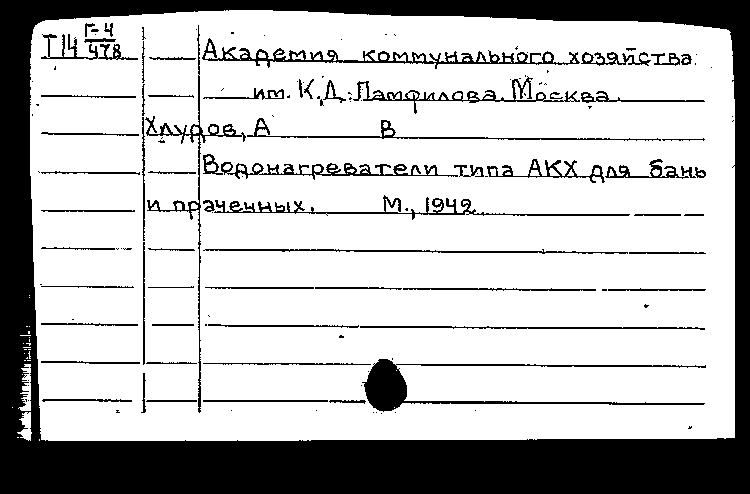 Т14 Г-4/478
Академия коммунального хозяйства
им. К.Д. Памфилова. Москва.
Хлудов, А В
Водонагреватели типа АКХ для бань
и праченных. М., 1942